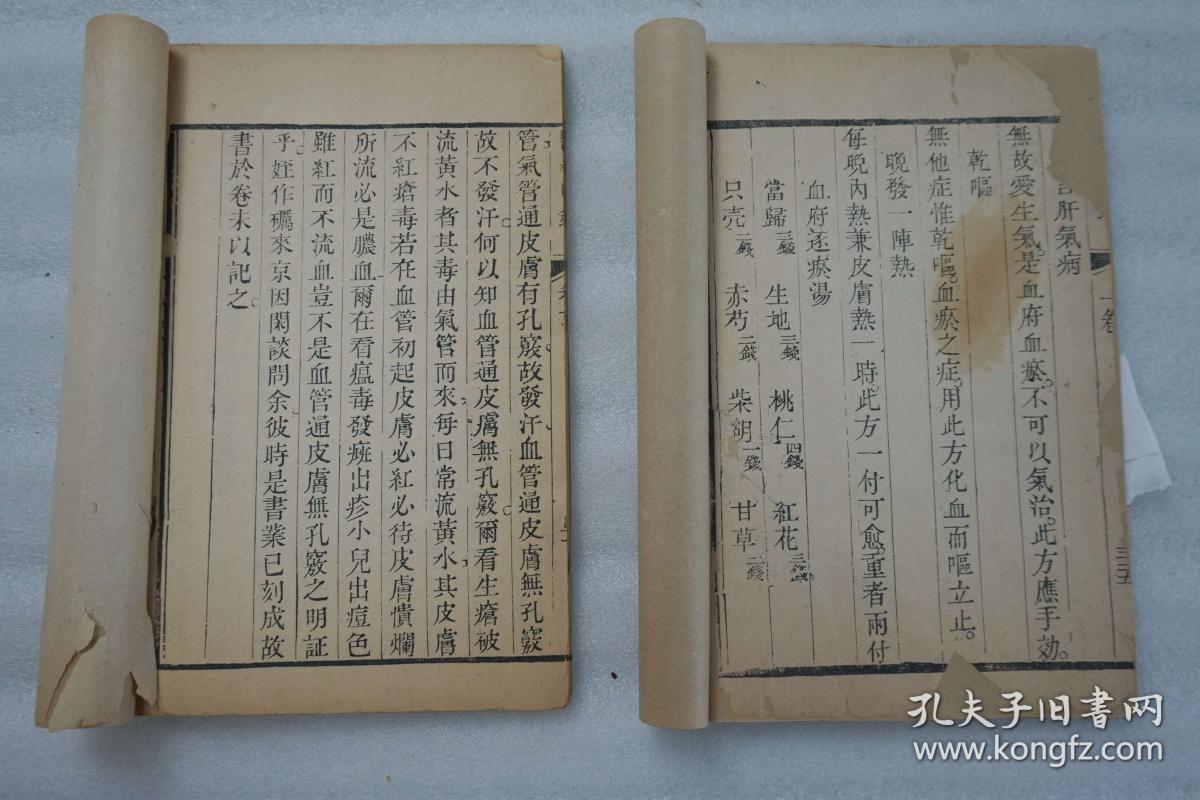 管氣管通皮膚有孔竅故發汗血管通皮膚無孔竅
故不發汗何以知血管通皮膚無孔竅爾看生瘡破
流黃水者其毒由氣管而來每日常流黃水其皮膚
不紅瘡毒若在血管初起皮膚必紅必待皮膚憒爛
所流必是膿血爾在看瘟毒發癍出疹小兒出痘色
雖紅而不流血豈不是血管通皮膚無孔竅之明証
乎姪作礪來京因閑談問余彼時是書業已刻成故
書於卷末以記之。
肝氣病
無故愛生氣。是血府血瘀。不可以氣治。此方應手効。
乾嘔
無他症惟乾嘔。血瘀之症。用此方化血而嘔立止。
晚發一陣熱
每晚內熱兼皮膚熱一時。此方一付可愈。重者兩付
血府逐瘀湯
當歸三錢 生地三錢 桃仁四錢 紅花三錢
只壳二錢 赤芍二錢 柴胡一錢 甘草二錢
一卷
三五
孔夫子旧书网
www.kongfz.com